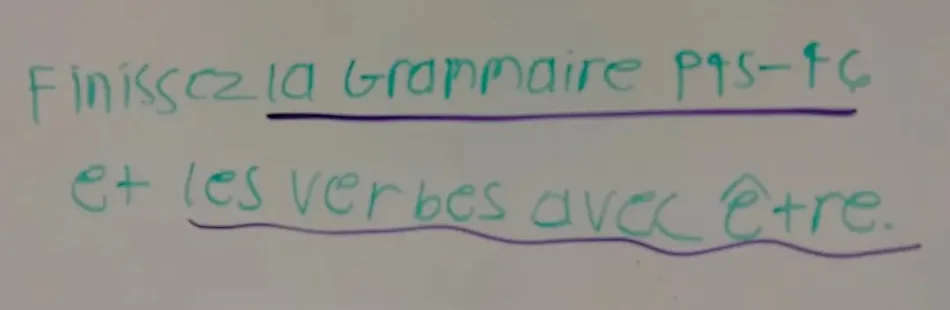 Finissez la Grammaire P95-96
et les verbes avec être.